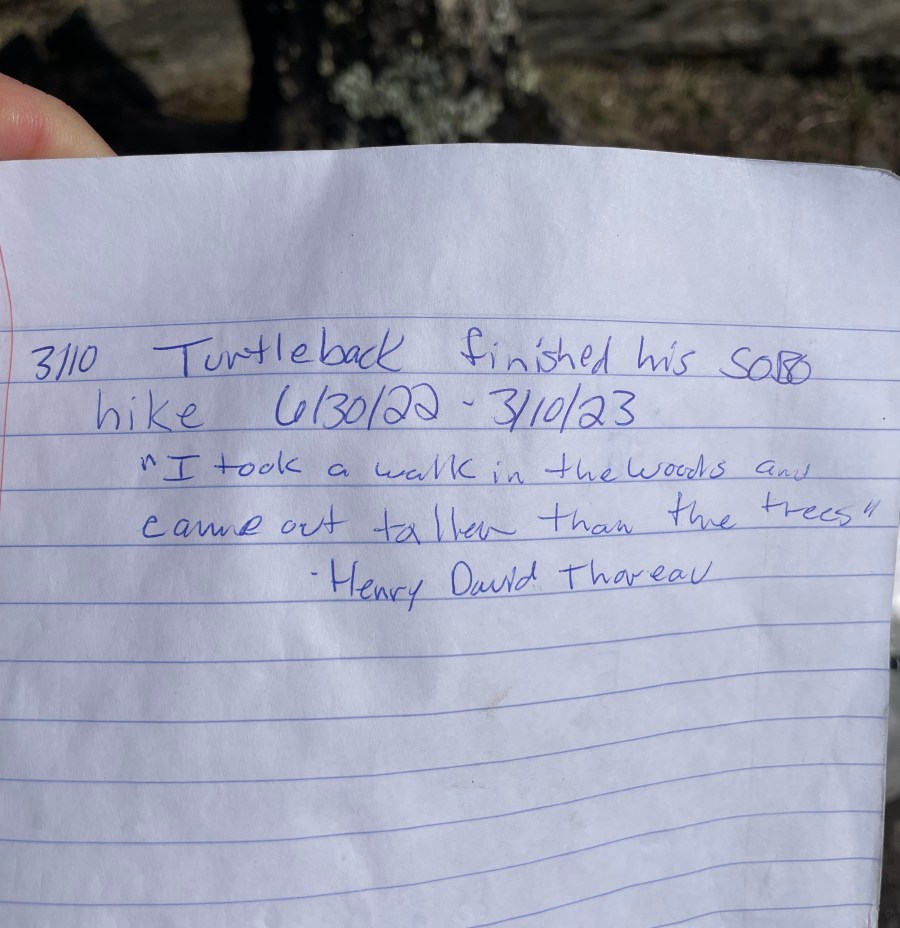 3/10 Turtleback finished his SOBO
hike 6/30/22 - 3/10/23
"I took a walk in the woods and
came out taller than the trees"
- Henry David Thoreau